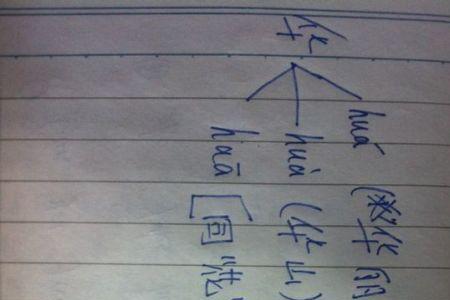 华
huá (华丽
huà (华山)
huā [同“花”